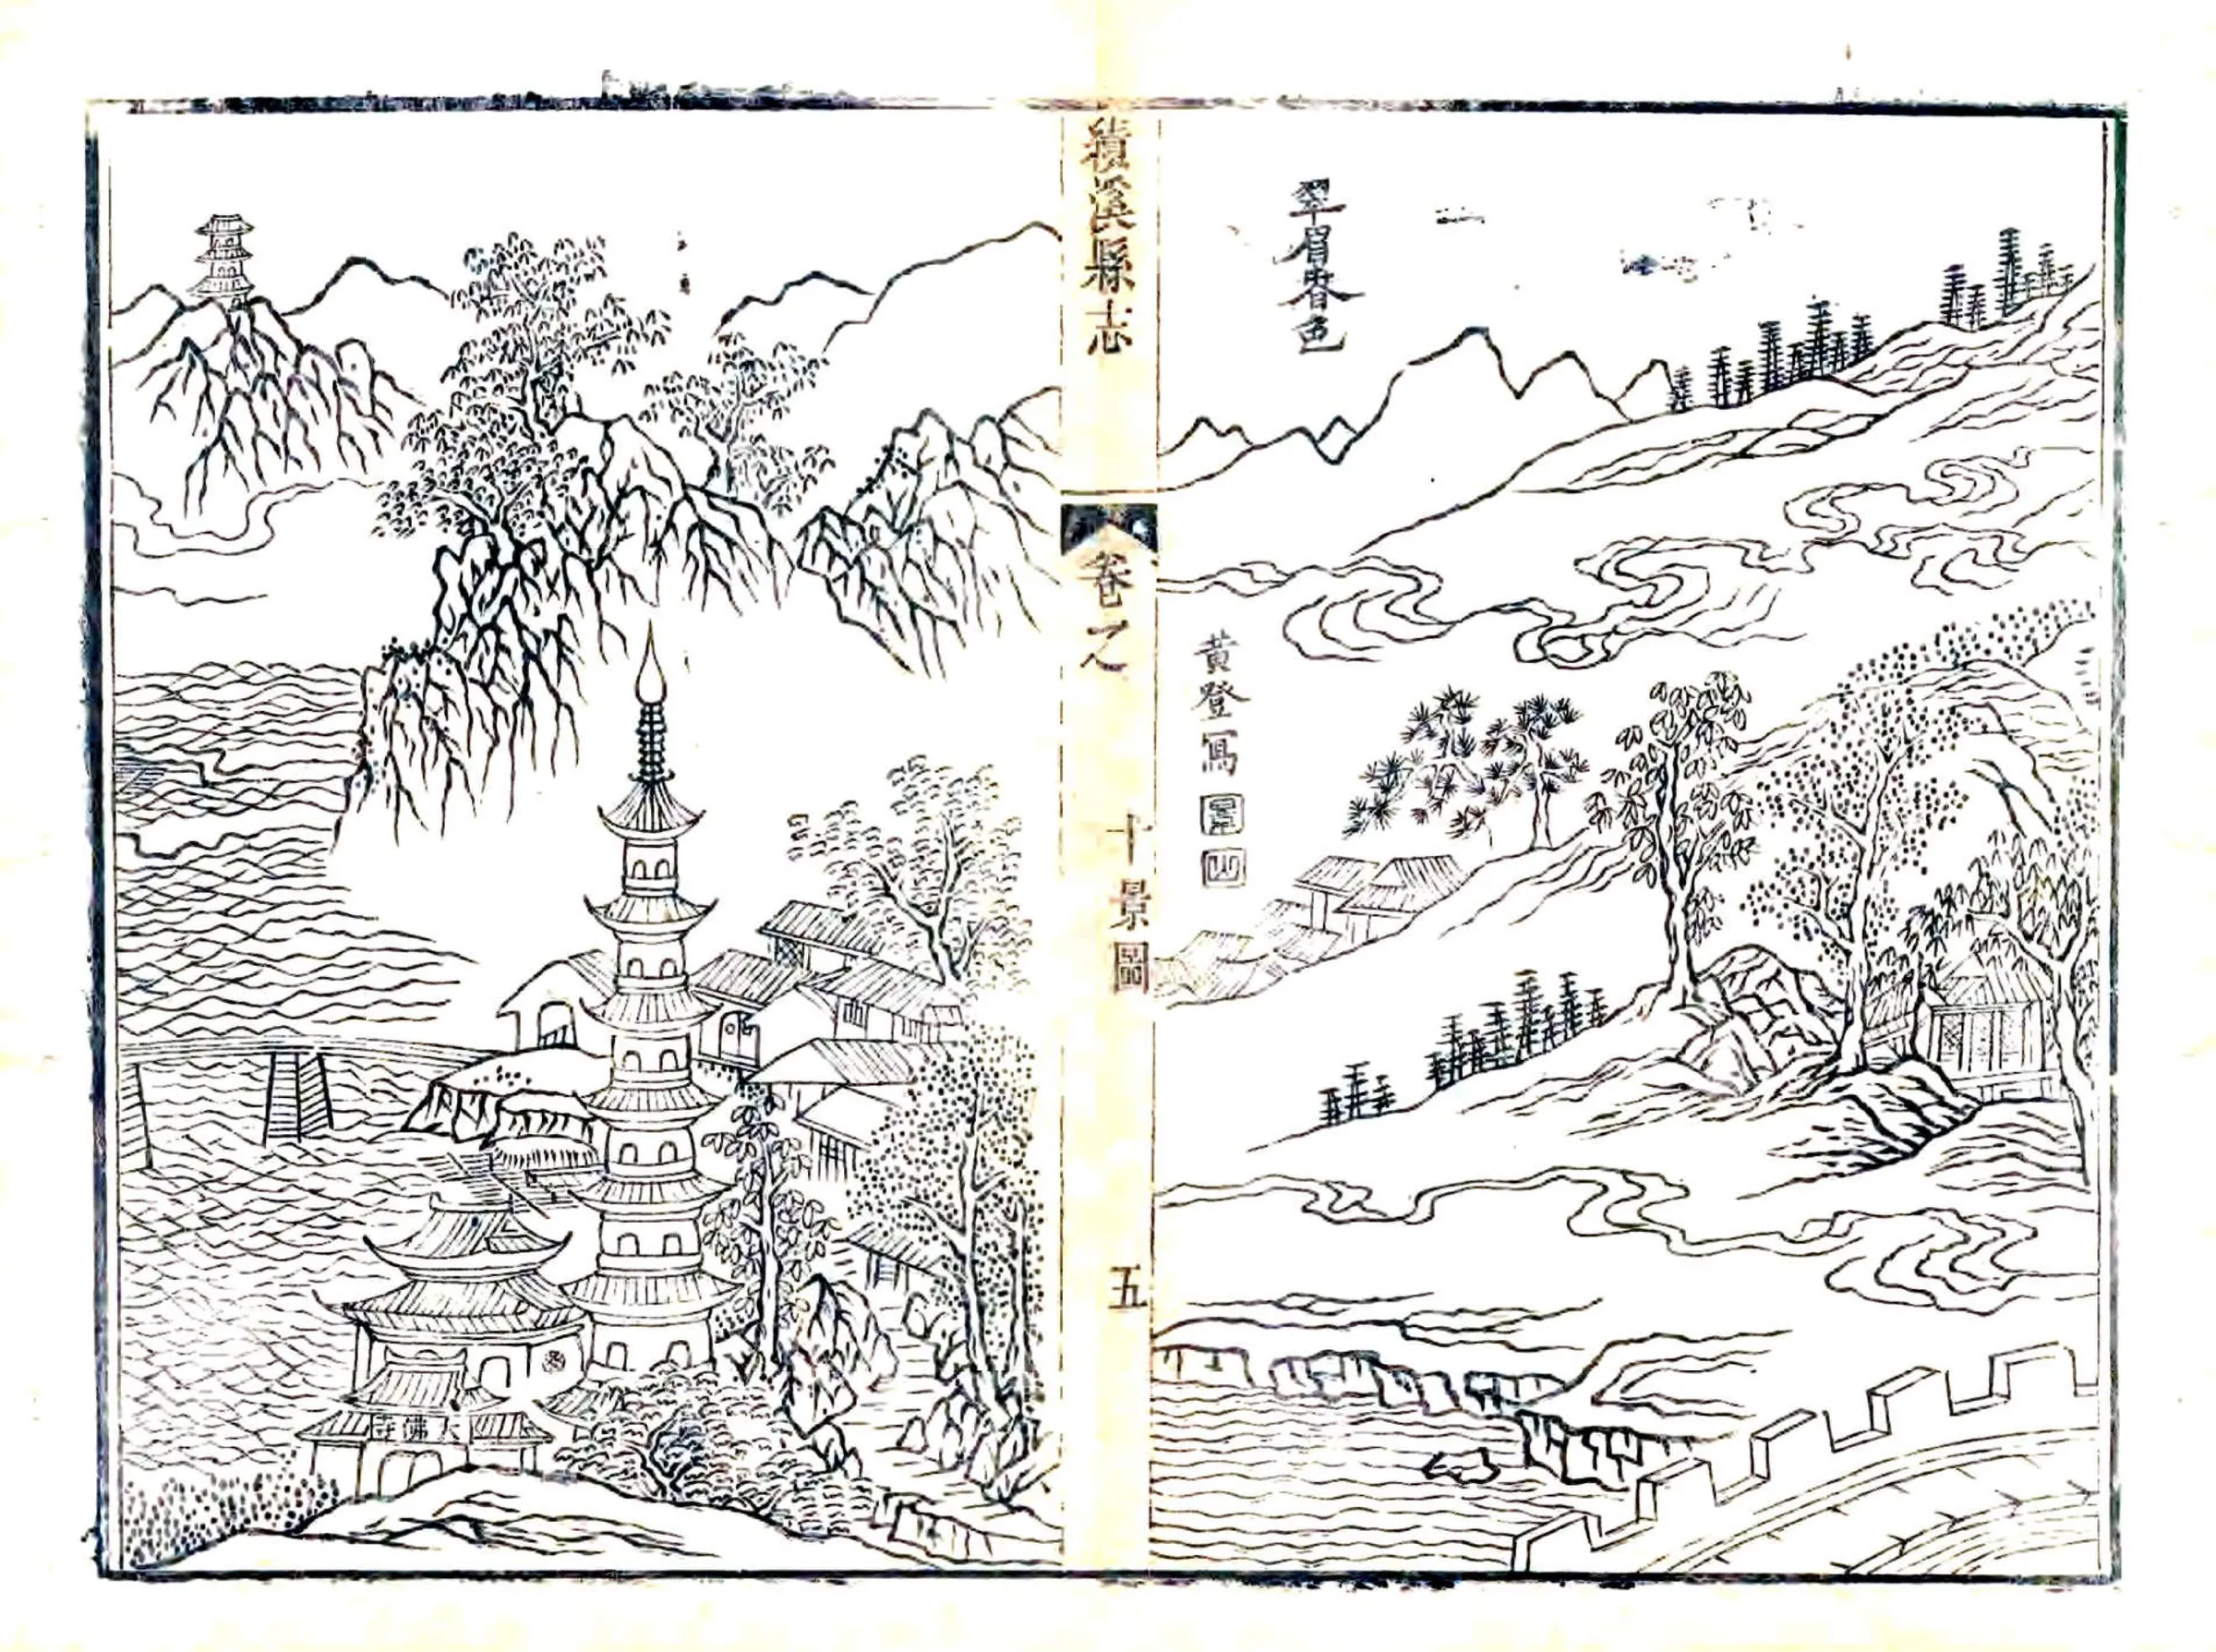 翠眉春色
黃登寫
績溪縣志
卷之
十景圖
五
大佛寺